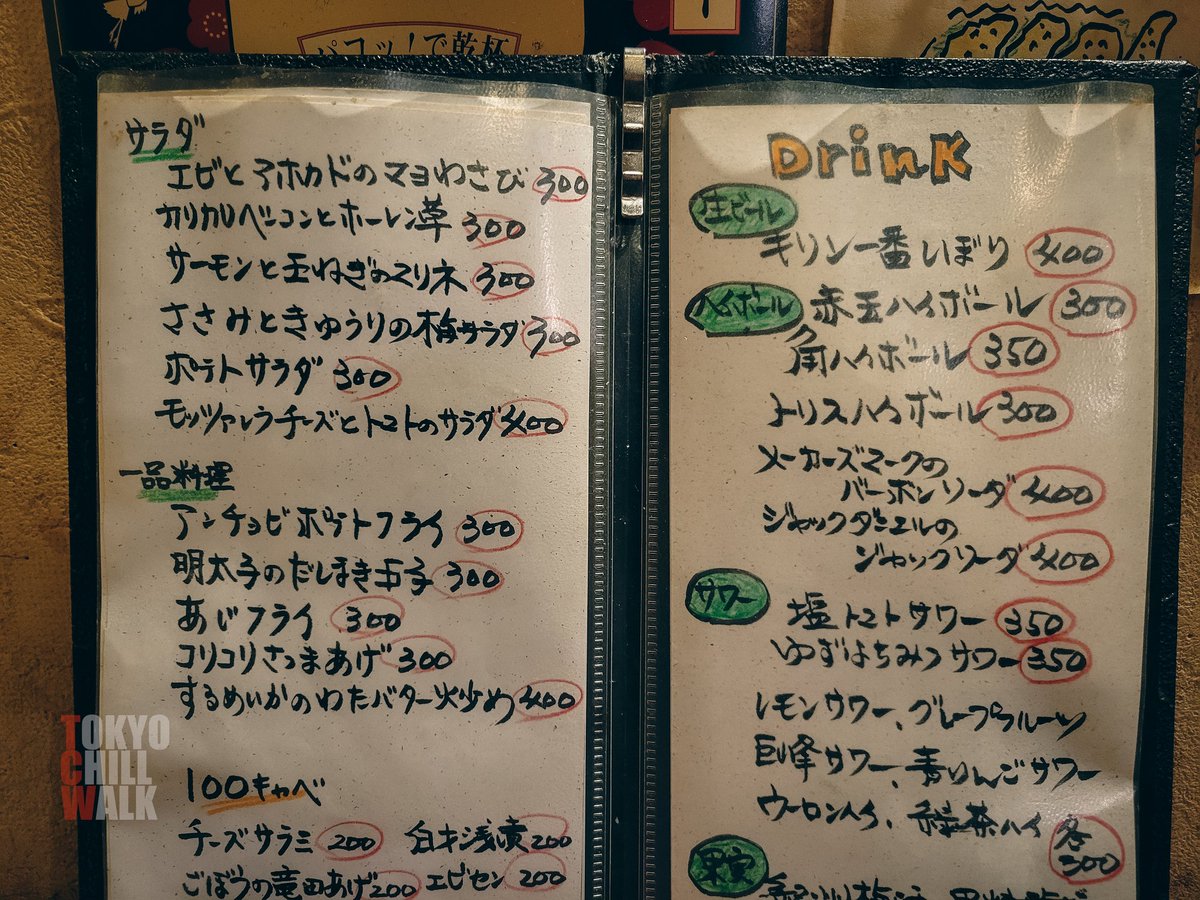 パコッ！で乾杯
サラダ
エビとアホカドのマヨわさび 300
カリカリベーコンとホーレン草 300
サーモンと玉ねぎのマリネ 300
ささみときゅうりの梅サラダ 300
ポテトサラダ 300
モッツァレラチーズとトマトのサラダ 400
一品料理
アンチョビポテトフライ 300
明太子のだしまき玉子 300
あじフライ 300
コリコリさつまあげ 300
するめいかのわたバター炒め 400
100キャベ
チーズサラミ 200 白キムチ浅漬 200
ごぼうの竜田あげ 200 エビセン 200
Drink
生ビール
キリン一番しぼり 400
ハイボール 赤玉ハイボール 300
角ハイボール 350
トリスハイボール 300
メーカーズマークの
バーボンソーダ 400
ジャックダニエルの
ジャックソーダ 400
サワー 塩トマトサワー 350
ゆずはちみつサワー 350
レモンサワー、グレープフルーツ
巨峰サワー、青りんごサワー
ウーロンハイ、緑茶ハイ 各
300
果実
TOKYO
CHILL
WALK